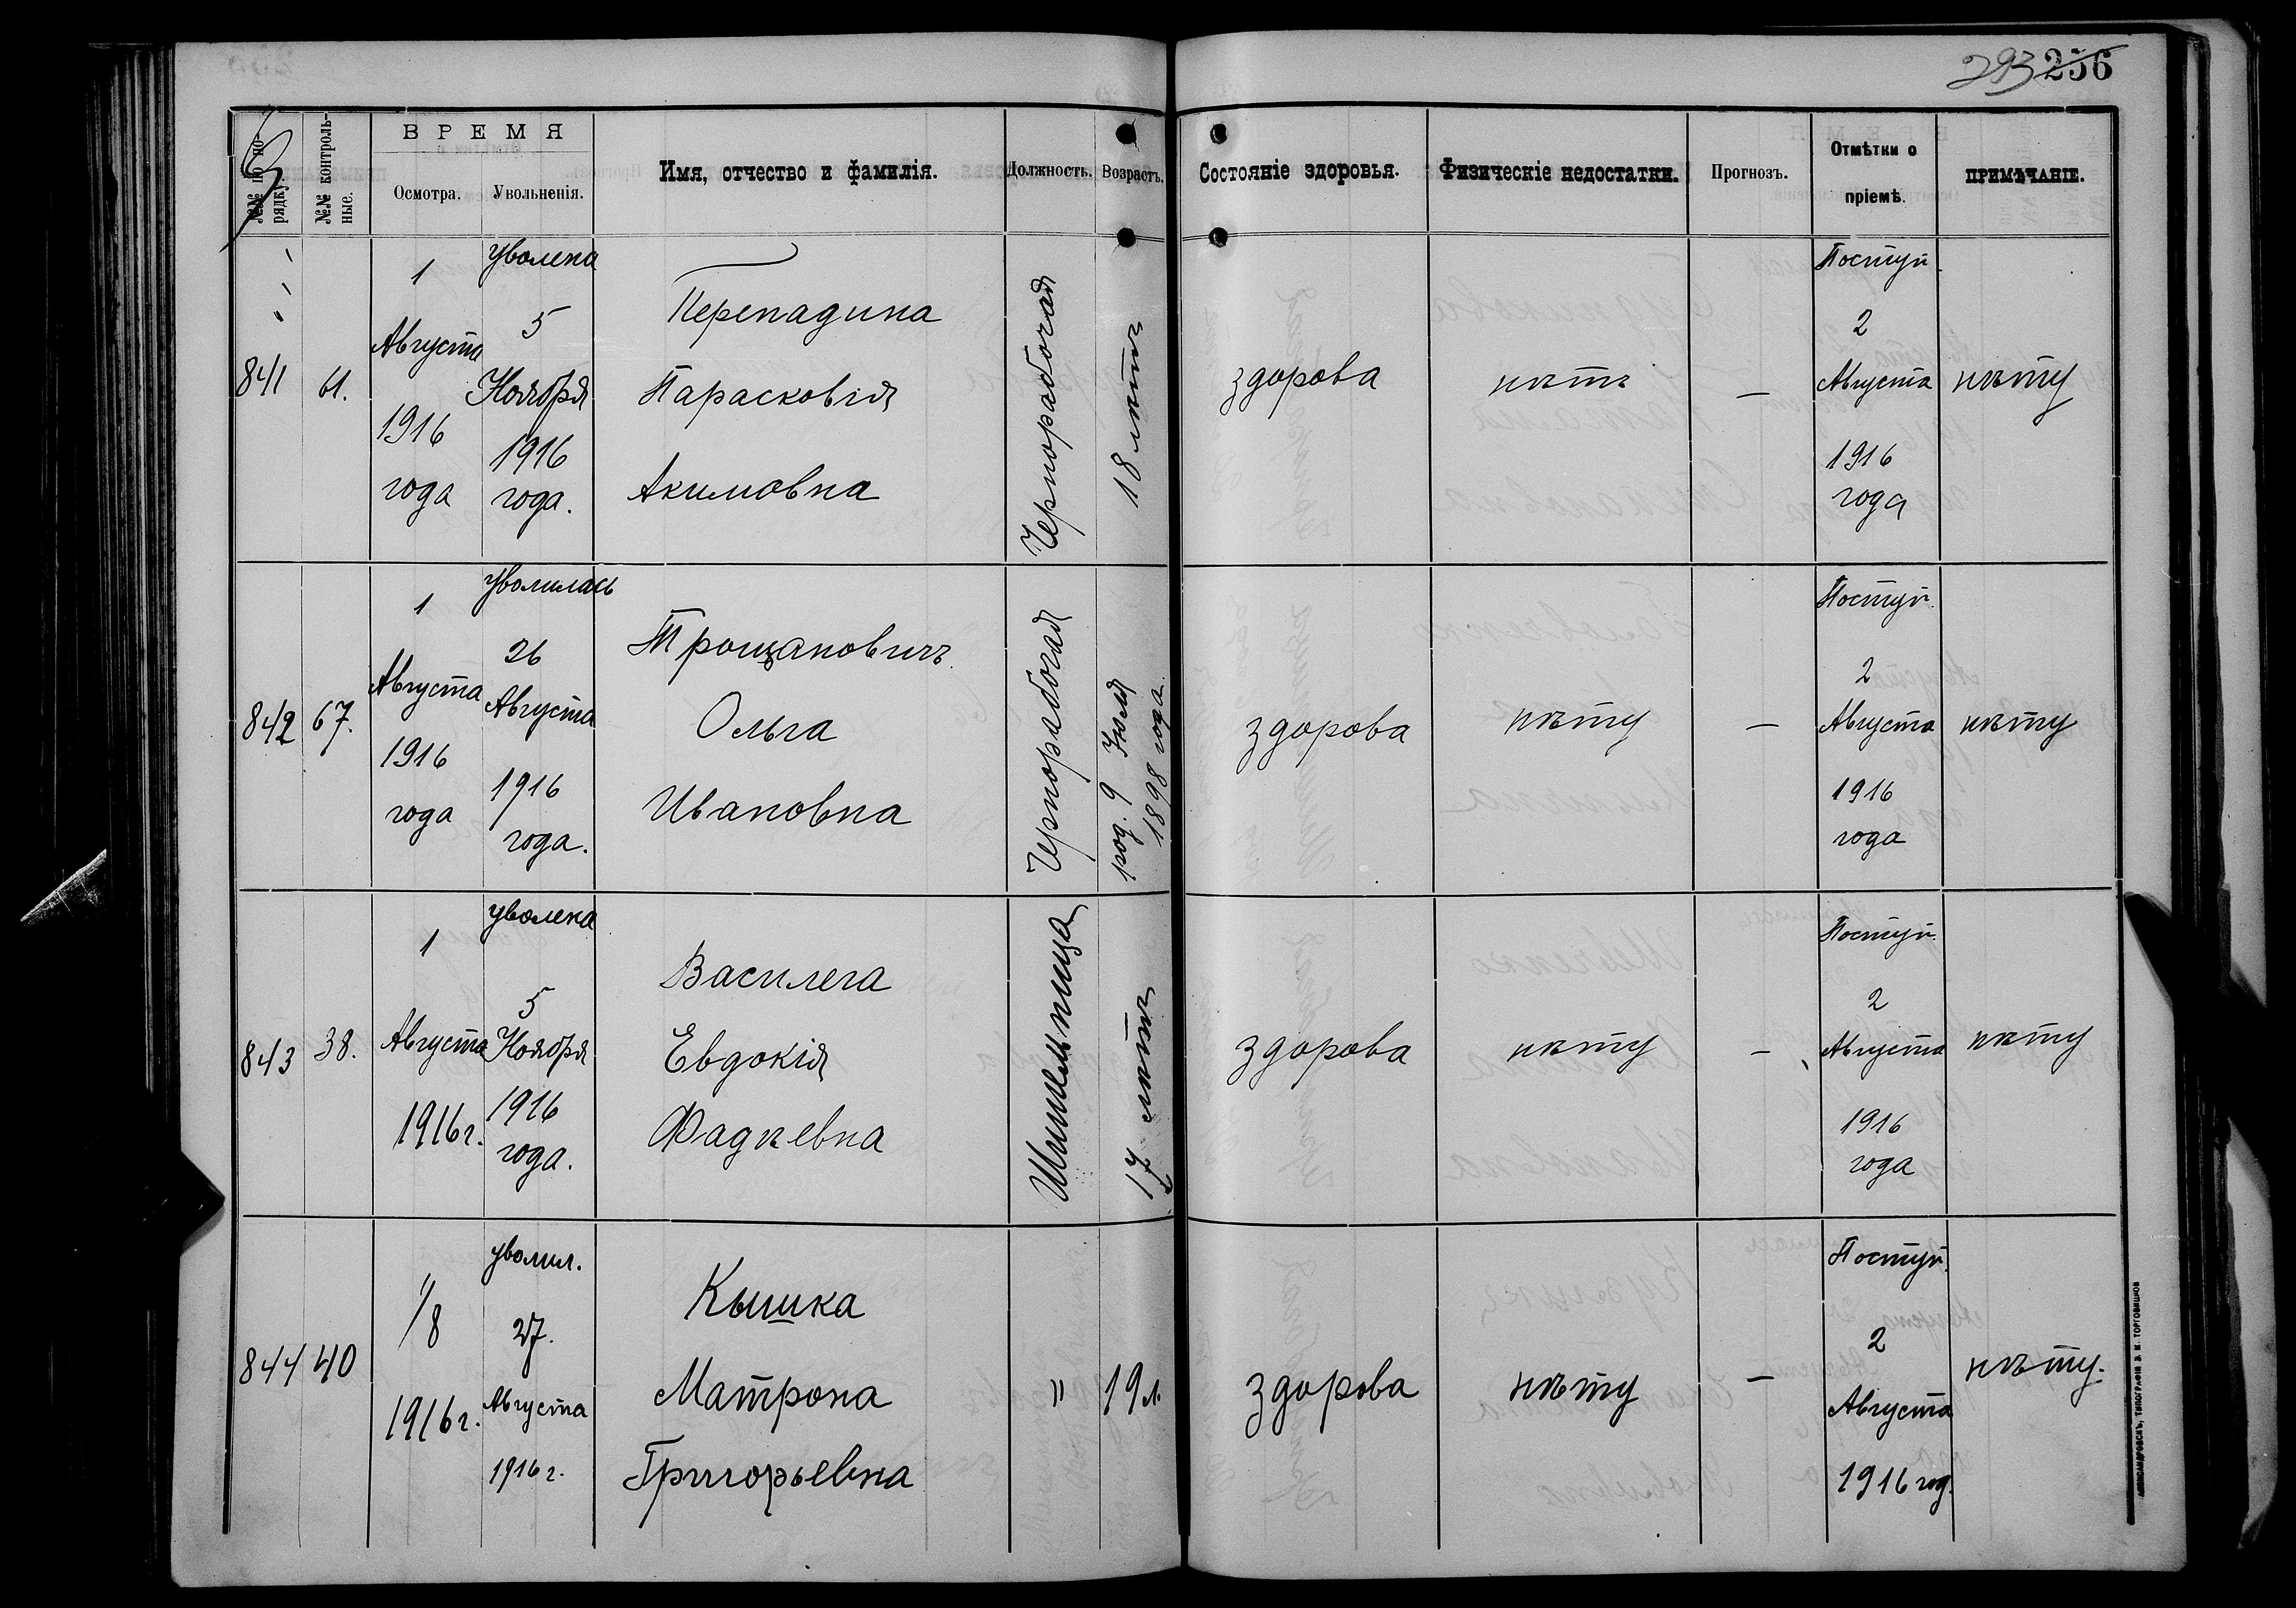 293 256
№№ по по-
рядку.
№№ контроль-
ные.
ВРЕМЯ
Осмотра.
Увольненія.
Имя, отчество и фамилія.
Должность.
Возрастъ.
Состояніе здоровья.
Физическіе недостатки.
Прогнозъ.
Отмѣтки о
пріемѣ.
ПРИМѢЧАНІЕ.
841
61.
1
Августа
1916
года
уволена
5
Ноября
1916
года.
Перепадина
Парасковія
Акимовна
Чернорабочая
18 лѣтъ
здорова
нѣтъ
—
Поступ.
2
Августа
1916
года
нѣту
842
67.
1
Августа
1916
года
уволилась
26
Августа
1916
года.
Трощановичъ
Ольга
Ивановна
Чернорабочая
род. 9 Іюля
1898 года.
здорова
нѣту
—
Поступ.
2
Августа
1916
года
нѣту
843
38.
1
Августа
1916 г.
уволена
5
Ноября
1916
года.
Василега
Евдокія
Фадѣевна
Шпильница
17 лѣтъ
здорова
нѣту
—
Поступ.
2
Августа
1916
года
нѣту
844
40
1/8
1916 г.
уволил.
27.
Августа
1916 г.
Кышка
Матрона
Григорьевна
"
19 л.
здорова
нѣту
—
Поступ.
2
Августа
1916 год.
нѣту.
АЛЕКСАНДРОВСКЪ, ТИПОГРАФІЯ Э. И. ТОРГОВИЦКОВ